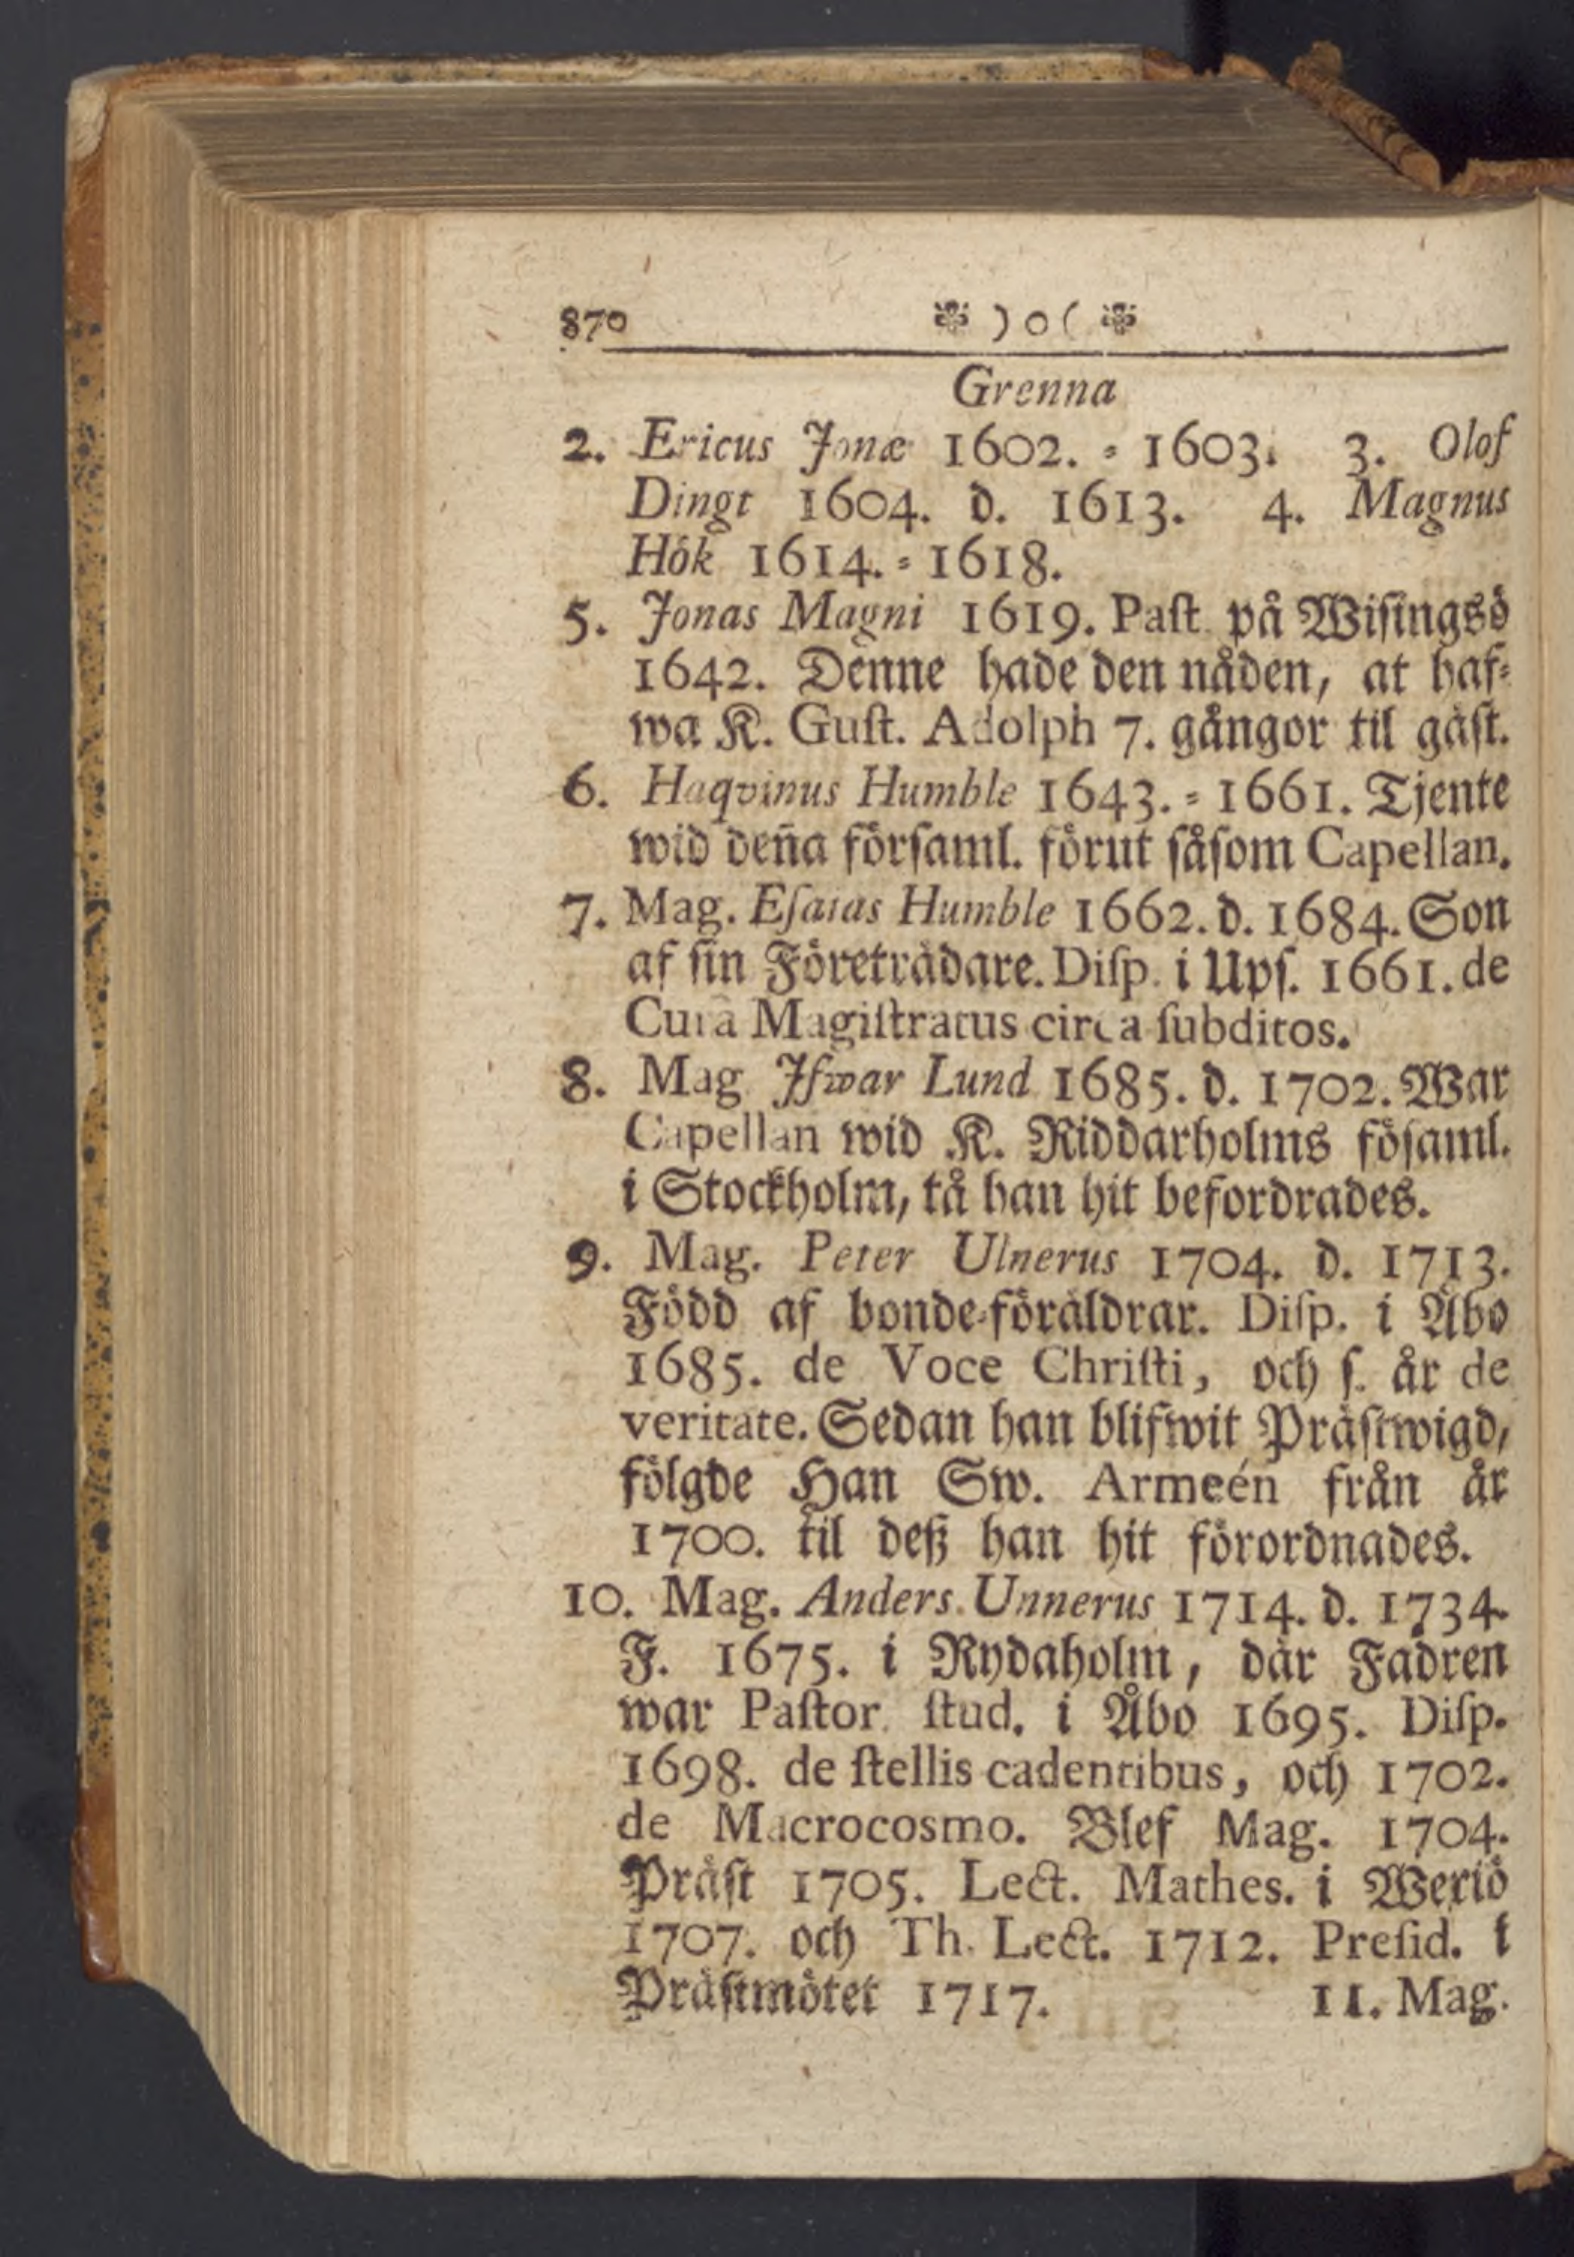 870 ❀ ) o ( ❀
Grenna
2. Ericus Jonæ 1602. = 1603. 3. Olof
Dingt 1604. d. 1613. 4. Magnus
Hök 1614. = 1618.
5. Jonas Magni 1619. Paſt. på Wiſingsö
1642. Denne hade den nåden, at haf=
wa K. Guſt. Adolph 7. gångor til gäſt.
6. Haqvinus Humble 1643. = 1661. Tjente
wid deña förſaml. förut ſåſom Capellan.
7. Mag. Eſaias Humble 1662. d. 1684. Son
af ſin Företrädare. Diſp. i Upſ. 1661. de
Curâ Magiſtratus circa ſubditos.
8. Mag. Jſwar Lund 1685. d. 1702. War
Capellan wid K. Riddarholms föſaml.
i Stockholm, tå han hit befordrades.
9. Mag. Peter Ulnerus 1704. d. 1713.
Född af bonde-föräldrar. Diſp. i Åbo
1685. de Voce Chriſti, och ſ. år de
veritate. Sedan han blifwit Präſtwigd,
fölgde Han Sw. Armeén från år
1700. til deß han hit förordnades.
10. Mag. Anders Unnerus 1714. d. 1734.
F. 1675. i Rydaholm, där Fadren
war Paſtor. ſtud. i Åbo 1695. Diſp.
1698. de ſtellis cadentibus, och 1702.
de Macrocosmo. Blef Mag. 1704.
Präſt 1705. Lect. Mathes. i Wexiö
1707. och Th. Lect. 1712. Preſid. i
Präſtmötet 1717. 11. Mag.